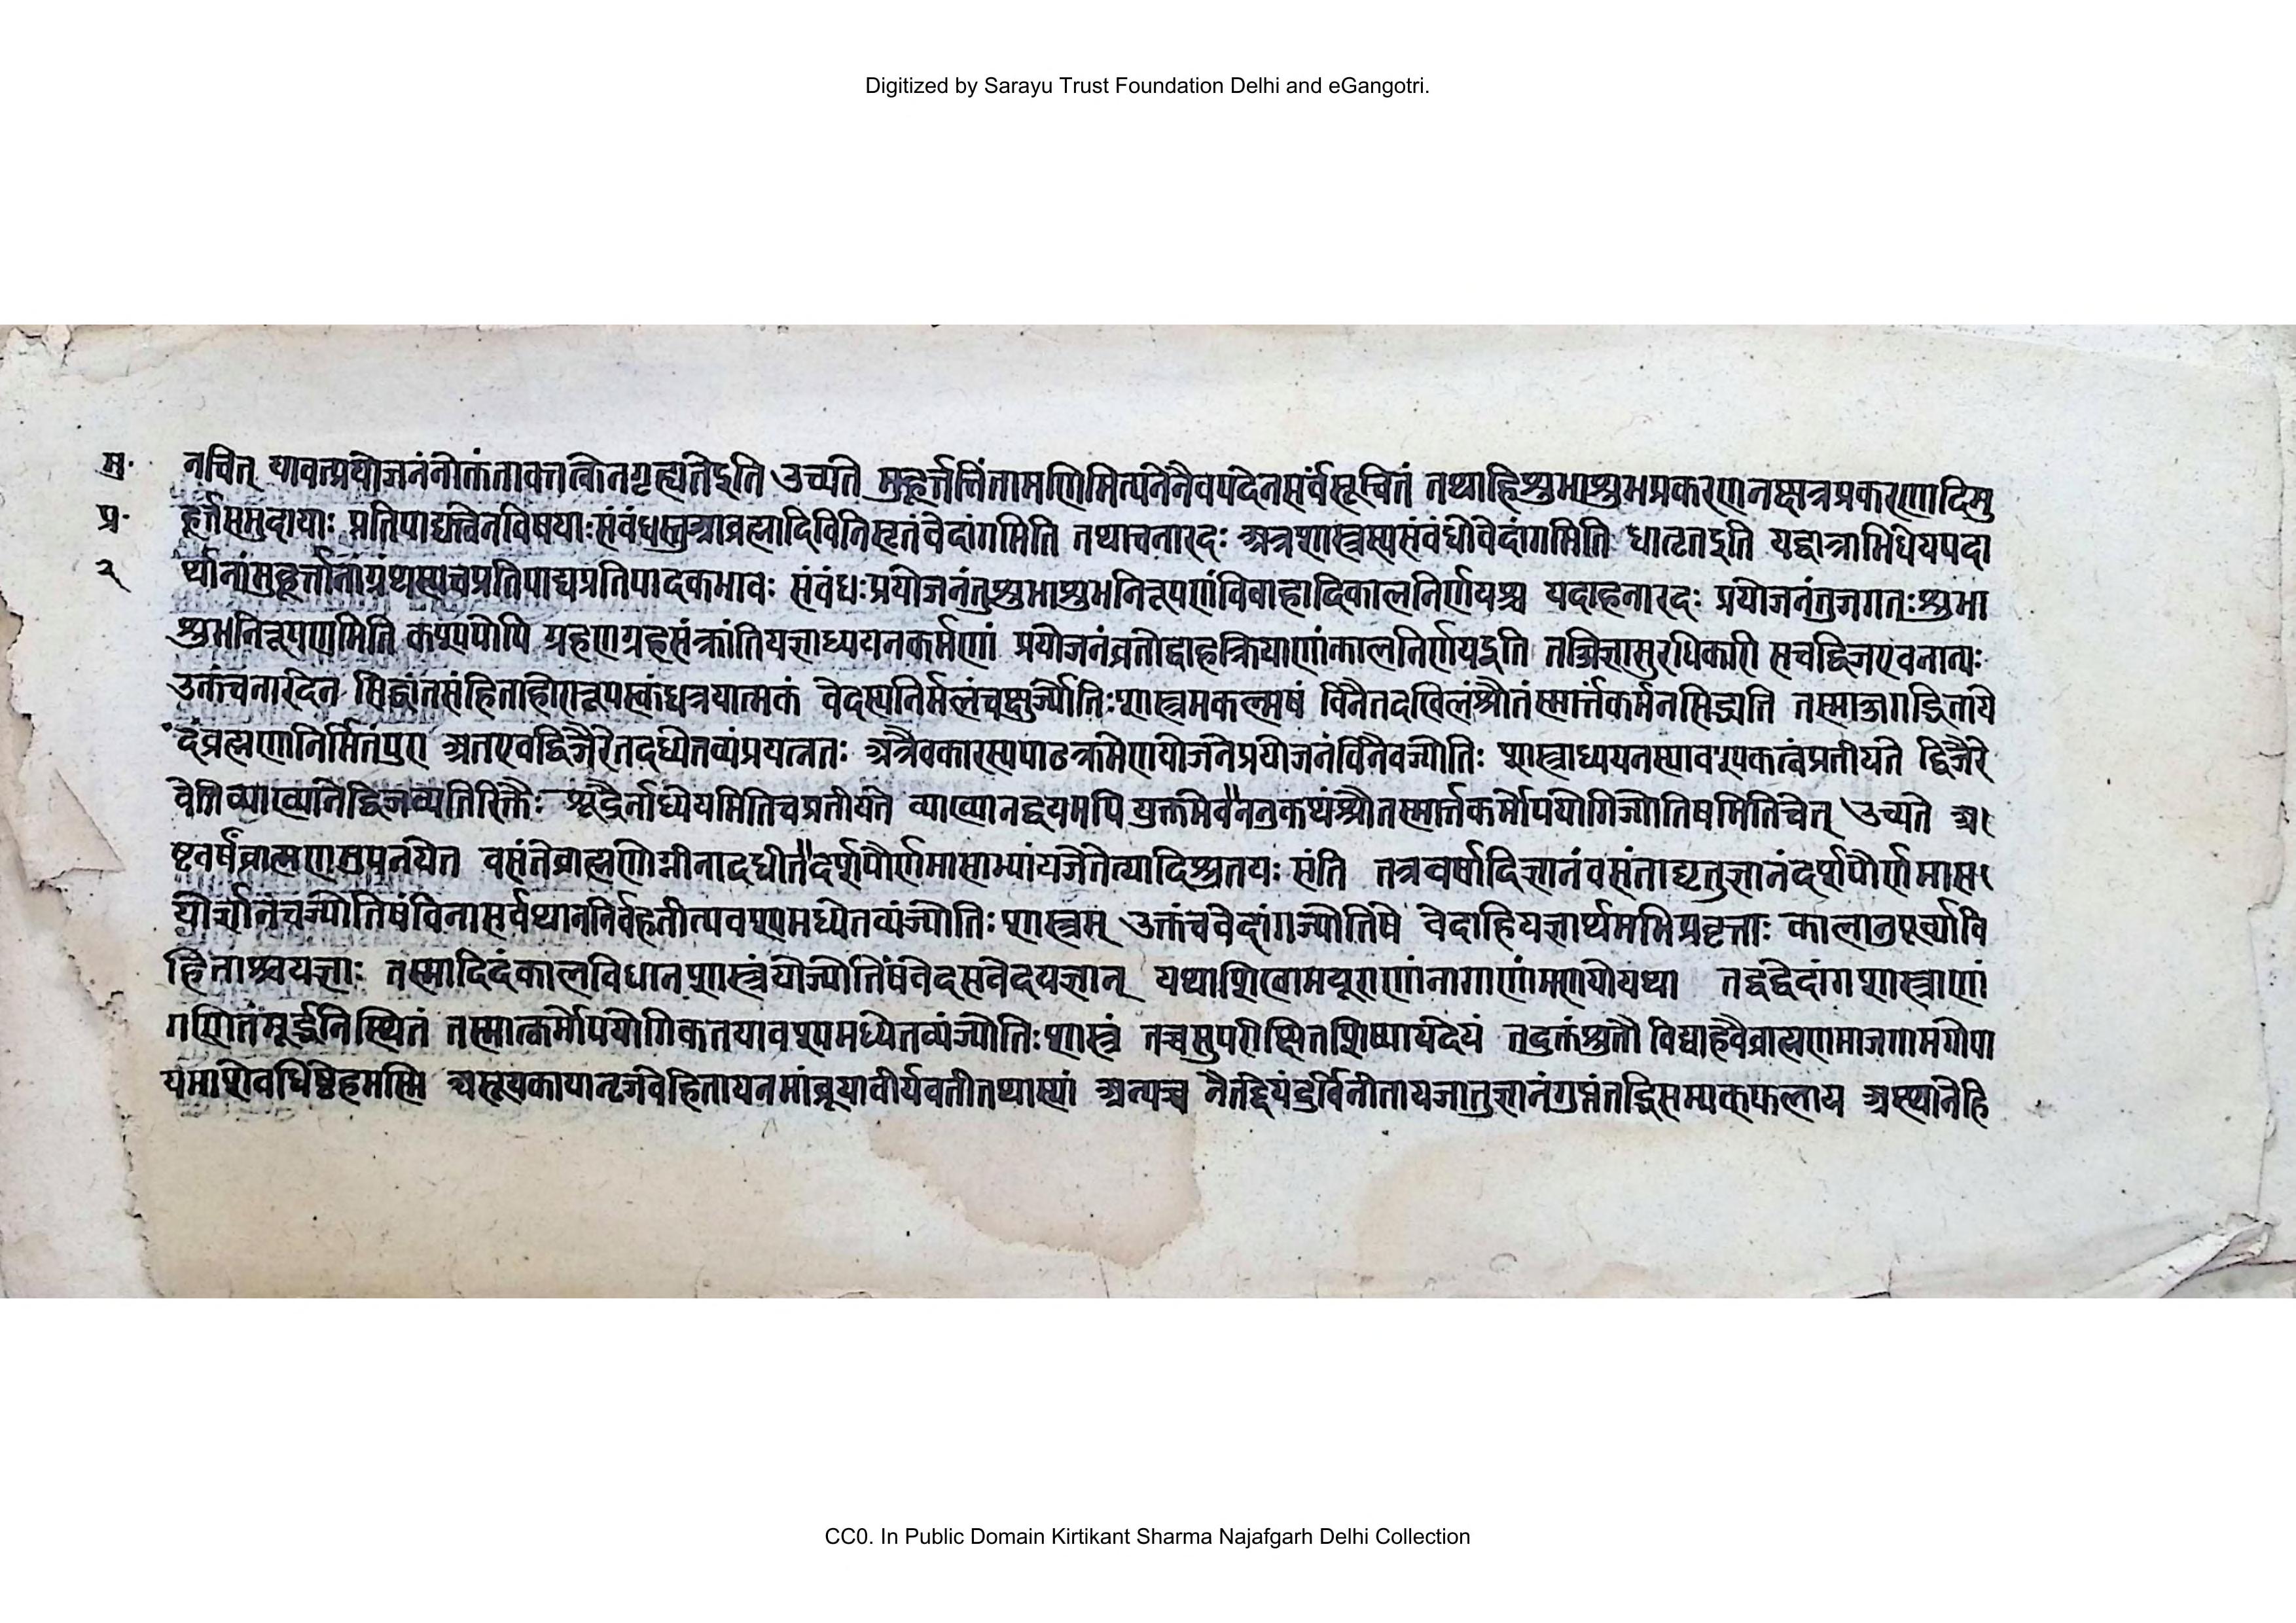 Digitized by Sarayu Trust Foundation Delhi and eGangotri.
मु॰ नचित् यावत्प्रयोजनंनोक्तंतावत्तत्केनगृह्यतेइति उच्यते मुहूर्त्तचिंतामणिमित्यनेनैवपदेनसर्वंसूचितं तथाहिशुभाशुभप्रकरणनक्षत्रप्रकरणादिमु
प्र॰ हूर्त्तसमुदायाः प्रतिपाद्यत्वेनविषयाःसंबंधस्तुआब्रह्मादिविनिसृतंवेदांगमिति तथाचनारदः अत्रशास्त्रस्यसंबंधोवेदांगमिति धातृतइति यद्वात्राभिधेयपदा
२ र्थानांमुहूर्त्तानांग्रंथस्यचप्रतिपाद्यप्रतिपादकभावः संबंधःप्रयोजनंतुशुभाशुभनिरूपणंविवाहादिकालनिर्णयश्च यदाहनारदः प्रयोजनंतुजगतःशुभा
शुभनिरूपणमिति कश्यपोपि ग्रहणग्रहसंक्रांतियज्ञाध्ययनकर्मणां प्रयोजनंव्रतोद्वाहक्रियाणांकालनिर्णयइति तज्जिज्ञासुरधिकारी सचद्विजएवनान्यः
उक्तंचनारदेन सिद्धांतसंहिताहोरारूपस्कंधत्रयात्मकं वेदस्यनिर्मलंचक्षुर्ज्योतिःशास्त्रमकल्मषं विनैतदखिलंश्रौतंस्मार्त्तंकर्मनसिद्ध्यति तस्माज्जगद्धिताये
दंब्रह्मणानिर्मितंपुरा अतएवद्विजैरेतदध्येतव्यंप्रयत्नतः अत्रैवकारस्यपाठक्रमेणयोजनेप्रयोजनंविनैवज्योतिः शास्त्राध्ययनस्यावश्यकत्वंप्रतीयते द्विजैरे
वेतिव्याख्यानेद्विजव्यतिरिक्तैः शूद्रैर्नाध्येयमितिचप्रतीयते व्याख्यानद्वयमपियुक्तमेव"ननुकथंश्रौतस्मार्त्तकर्मोपयोगिज्योतिषमितिचेत् उच्यते अ
ष्टवर्षंब्राह्मणमुपनयेत वसंतेब्राह्मणोग्नीनादधीत"दर्शपौर्णमासाभ्यांयजेतेत्यादिश्रुतयः संति तत्रवर्षादिज्ञानंवसंताद्यृतुज्ञानंदर्शपौर्णमास
योर्ज्ञानंचज्योतिषंविनासर्वथाननिर्वहतीत्यवश्यमध्येतव्यंज्योतिःशास्त्रम् उक्तंचवेदांगज्योतिषे वेदाहियज्ञार्थमभिप्रवृत्ताः कालानुपूर्व्यावि
हिताश्चयज्ञाः तस्मादिदंकालविधानशास्त्रंयोज्योतिषंवेदसवेदयज्ञान् यथाशिखामयूराणांनागाणांमणयोयथा तद्वद्वेदांगशास्त्राणां
गणितंमूर्द्धनिस्थितं तस्मात्कर्मोपयोगिकतयावश्यमध्येतव्यंज्योतिःशास्त्रं तच्चसुपरीक्षितशिष्यायदेयं तदुक्तंश्रुतौ विद्याहवैब्राह्मणमाजगामगोपा
यमाशेवधिष्टेहमस्मि असूयकायानृजवेहितायनमांब्रूयावीर्यवतीतथास्यां अन्यच्च नैतद्देयंदुर्विनीतायजातुज्ञानंगुप्तंतद्धिसम्यक्फलाय अस्थानेहि
CC0. In Public Domain Kirtikant Sharma Najafgarh Delhi Collection